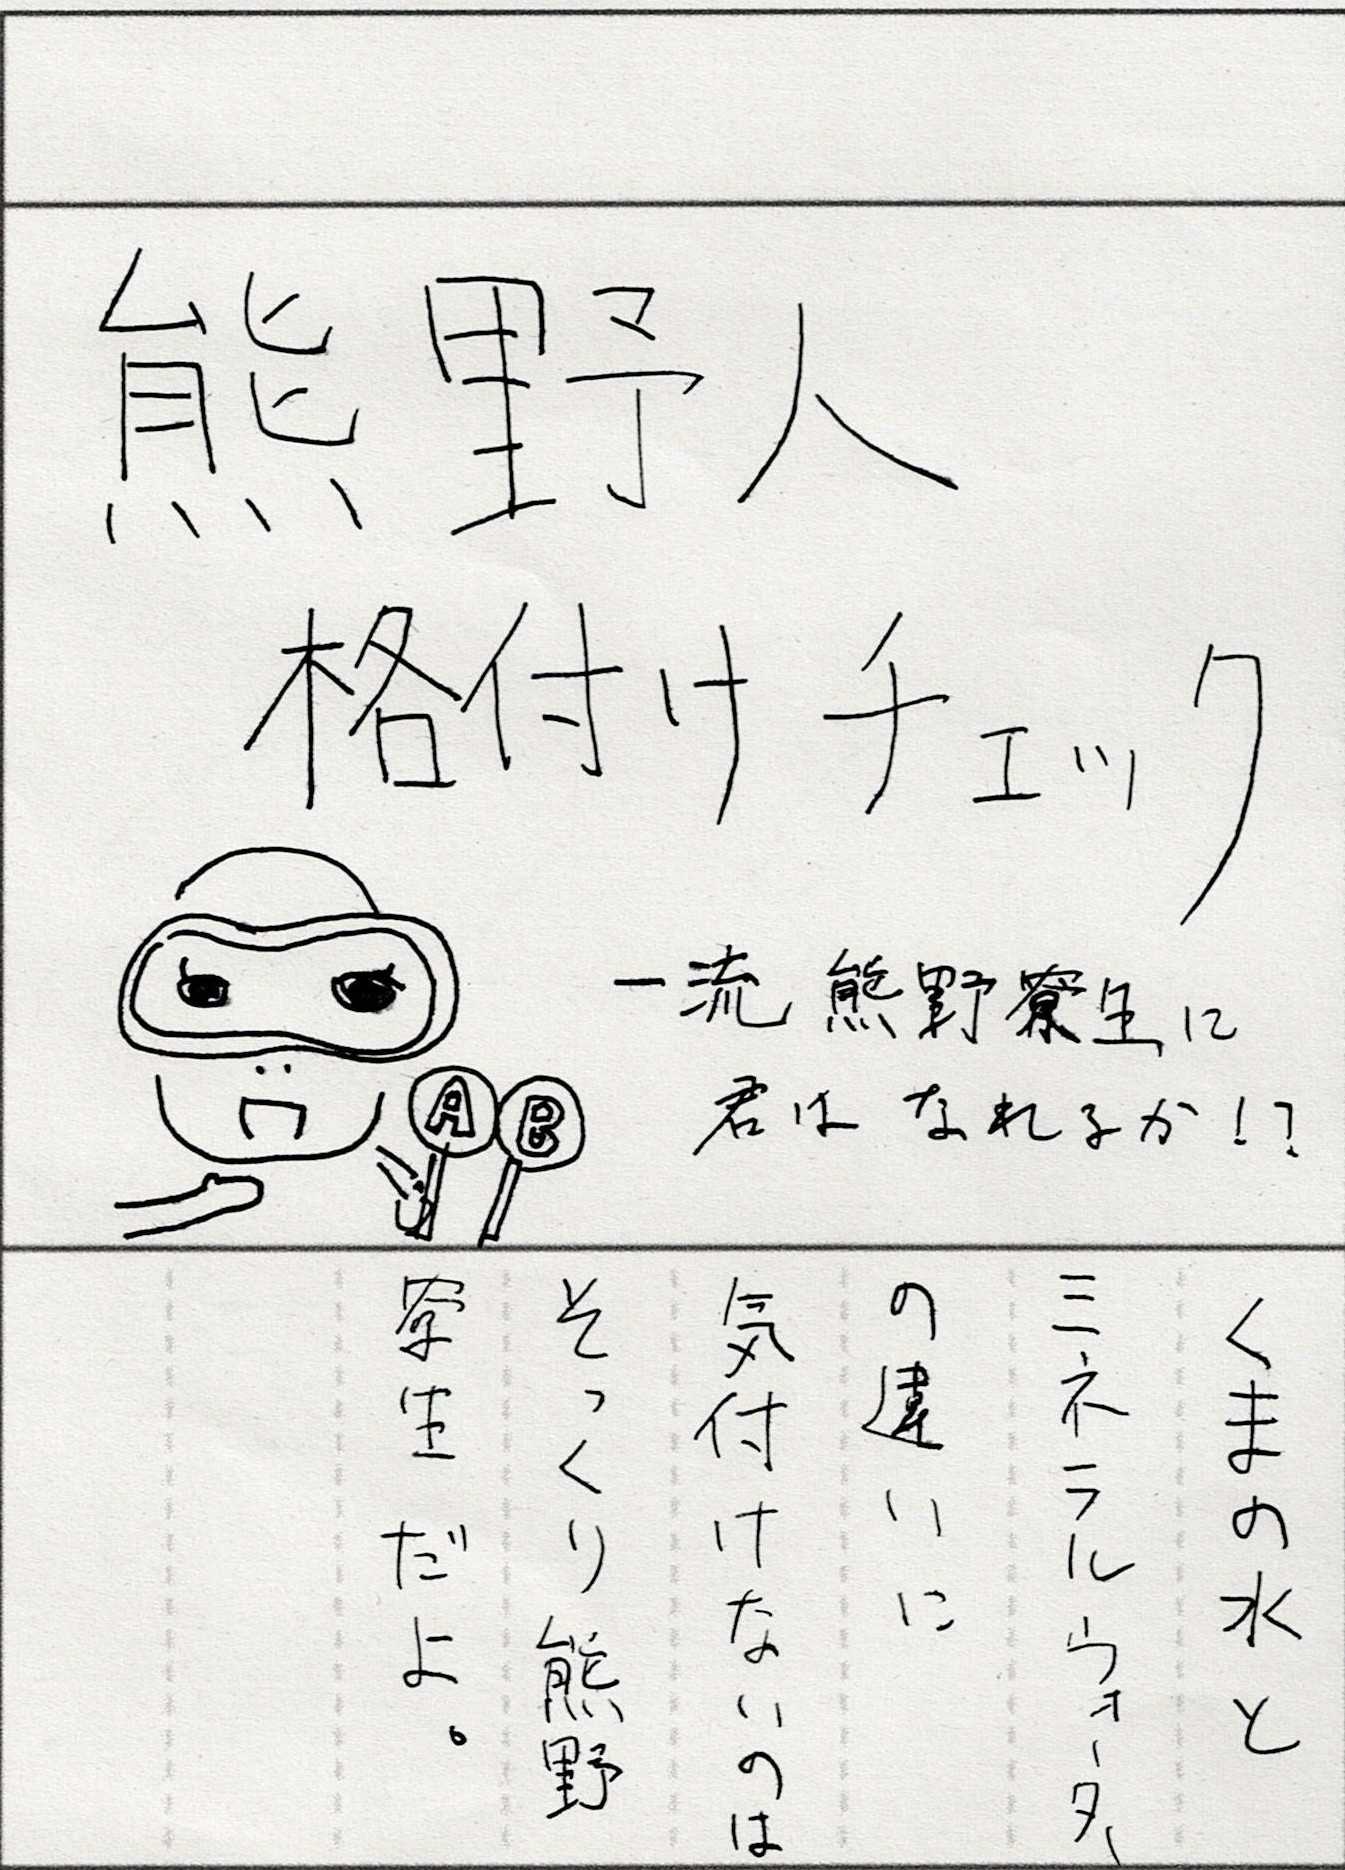 熊野人
格付けチェック
一流熊野寮生に
君はなれるか!?
A B
くまの水と
ミネラルウォーター
の違いに
気付けないのは
そっくり熊野
寮生だよ。